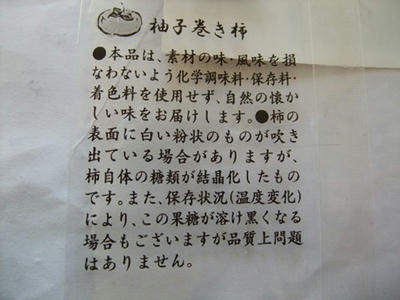 柚子巻き柿
●本品は、素材の味・風味を損
なわないよう化学調味料・保存料・
着色料を使用せず、自然の懐か
しい味をお届けします。●柿の
表面に白い粉状のものが吹き
出ている場合がありますが、
柿自体の糖類が結晶化したもの
です。また、保存状況(温度変化)
により、この果糖が溶け黒くなる
場合もございますが品質上問題
はありません。